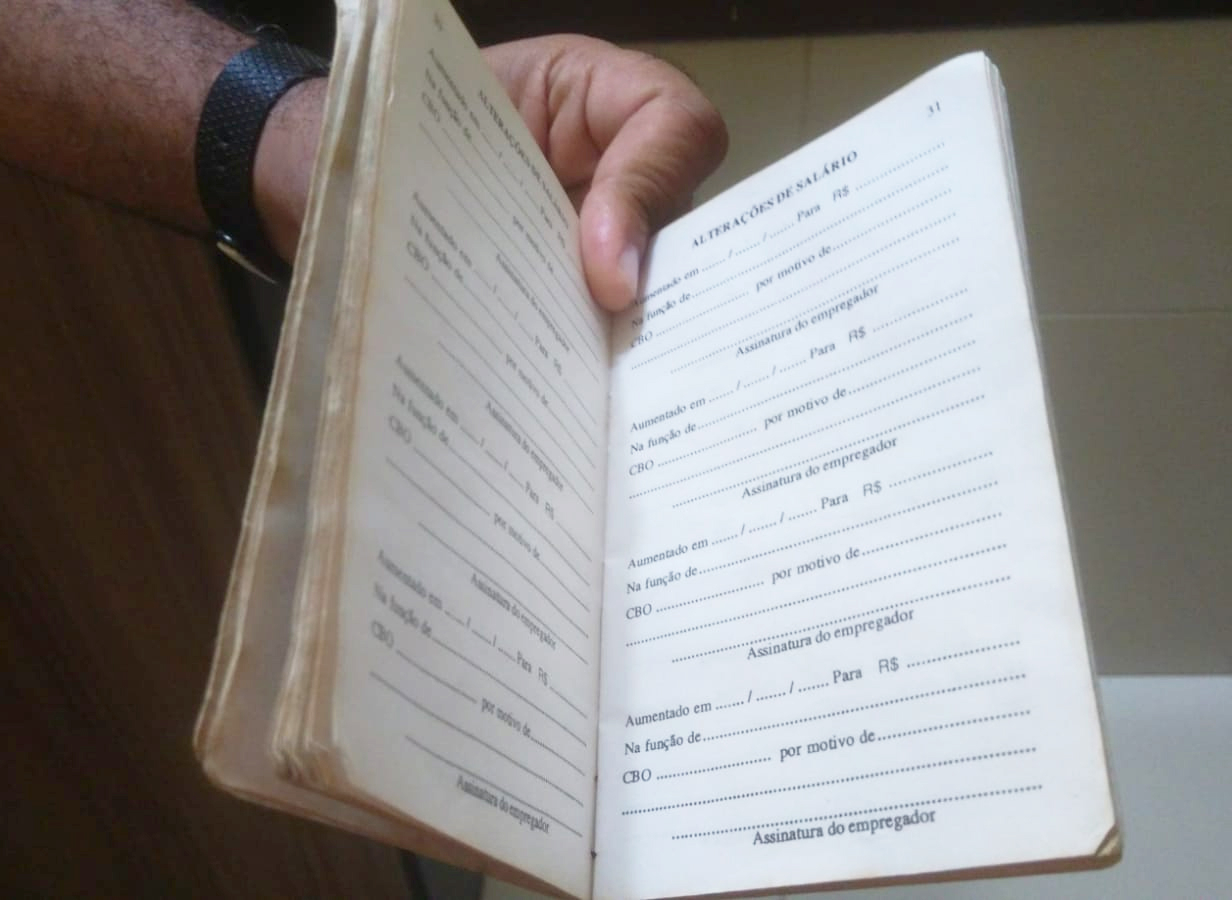 ALTERAÇÕES DE
Aumentado em ....... / ....... / ....... Para R$ .......
Na função de
CBO ....... por motivo de
Assinatura do empregador
Aumentado em ....... / ....... / ....... Para R$ .......
Na função de
CBO ....... por motivo de
Assinatura do empregador
Aumentado em ....... / ....... / ....... Para R$ .......
Na função de
CBO ....... por motivo de
Assinatura do empregador
Aumentado em ....... / ....... / ....... Para R$ .......
Na função de
CBO ....... por motivo de
Assinatura do empregador
31
ALTERAÇÕES DE SALÁRIO
Aumentado em ....... / ....... / ....... Para R$ .......
Na função de
CBO ....... por motivo de
Assinatura do empregador
Aumentado em ....... / ....... / ....... Para R$ .......
Na função de
CBO ....... por motivo de
Assinatura do empregador
Aumentado em ....... / ....... / ....... Para R$ .......
Na função de
CBO ....... por motivo de
Assinatura do empregador
Aumentado em ....... / ....... / ....... Para R$ .......
Na função de
CBO ....... por motivo de
Assinatura do empregador